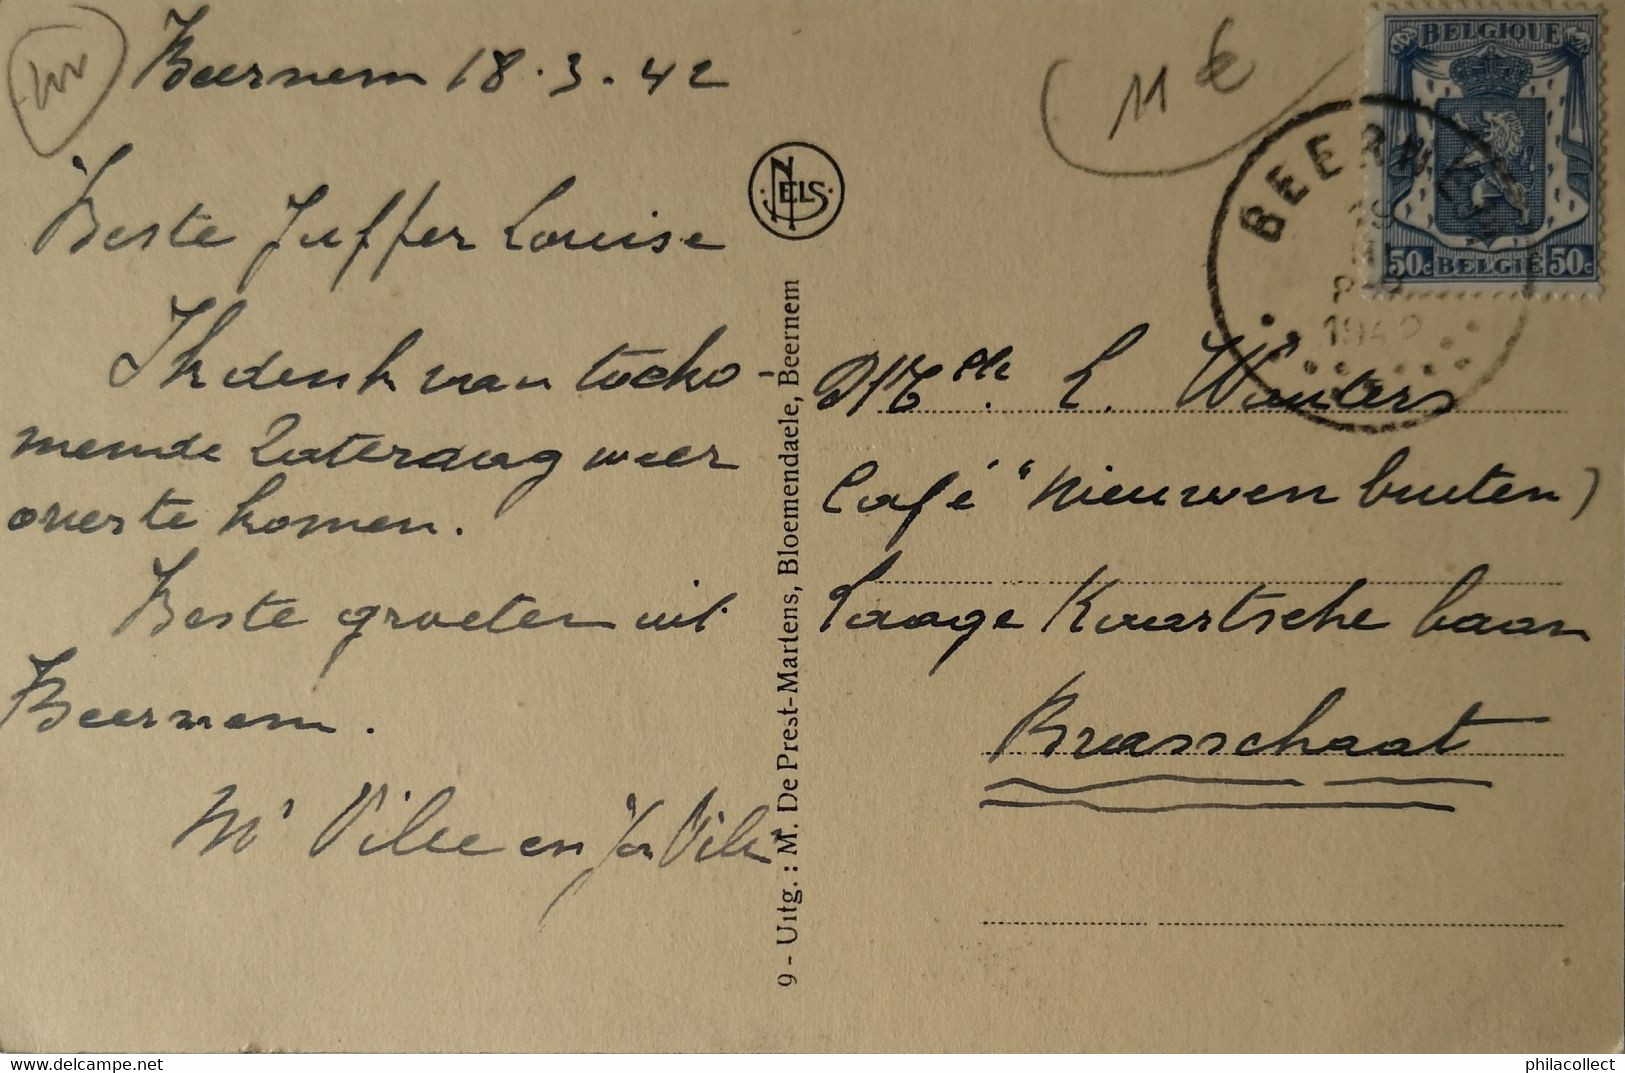 Beernem 18.3.42
Beste Juffer Louise
Ik denk van toeko-
mende Zaterdag weer
over te komen.
Beste groeten uit
Beernem.
Mr Ville en
NELS
9 - Uitg. : M. De Prest-Martens, Bloemendaele, Beernem
11 €
BELGIQUE
50c BELGIE 50c
BEERNEM
1942
Melle. L. Wouters
Café "Nieuwen buiten)
Laage Kaartsche baan
Brasschaat
delcampe.net
philacollect